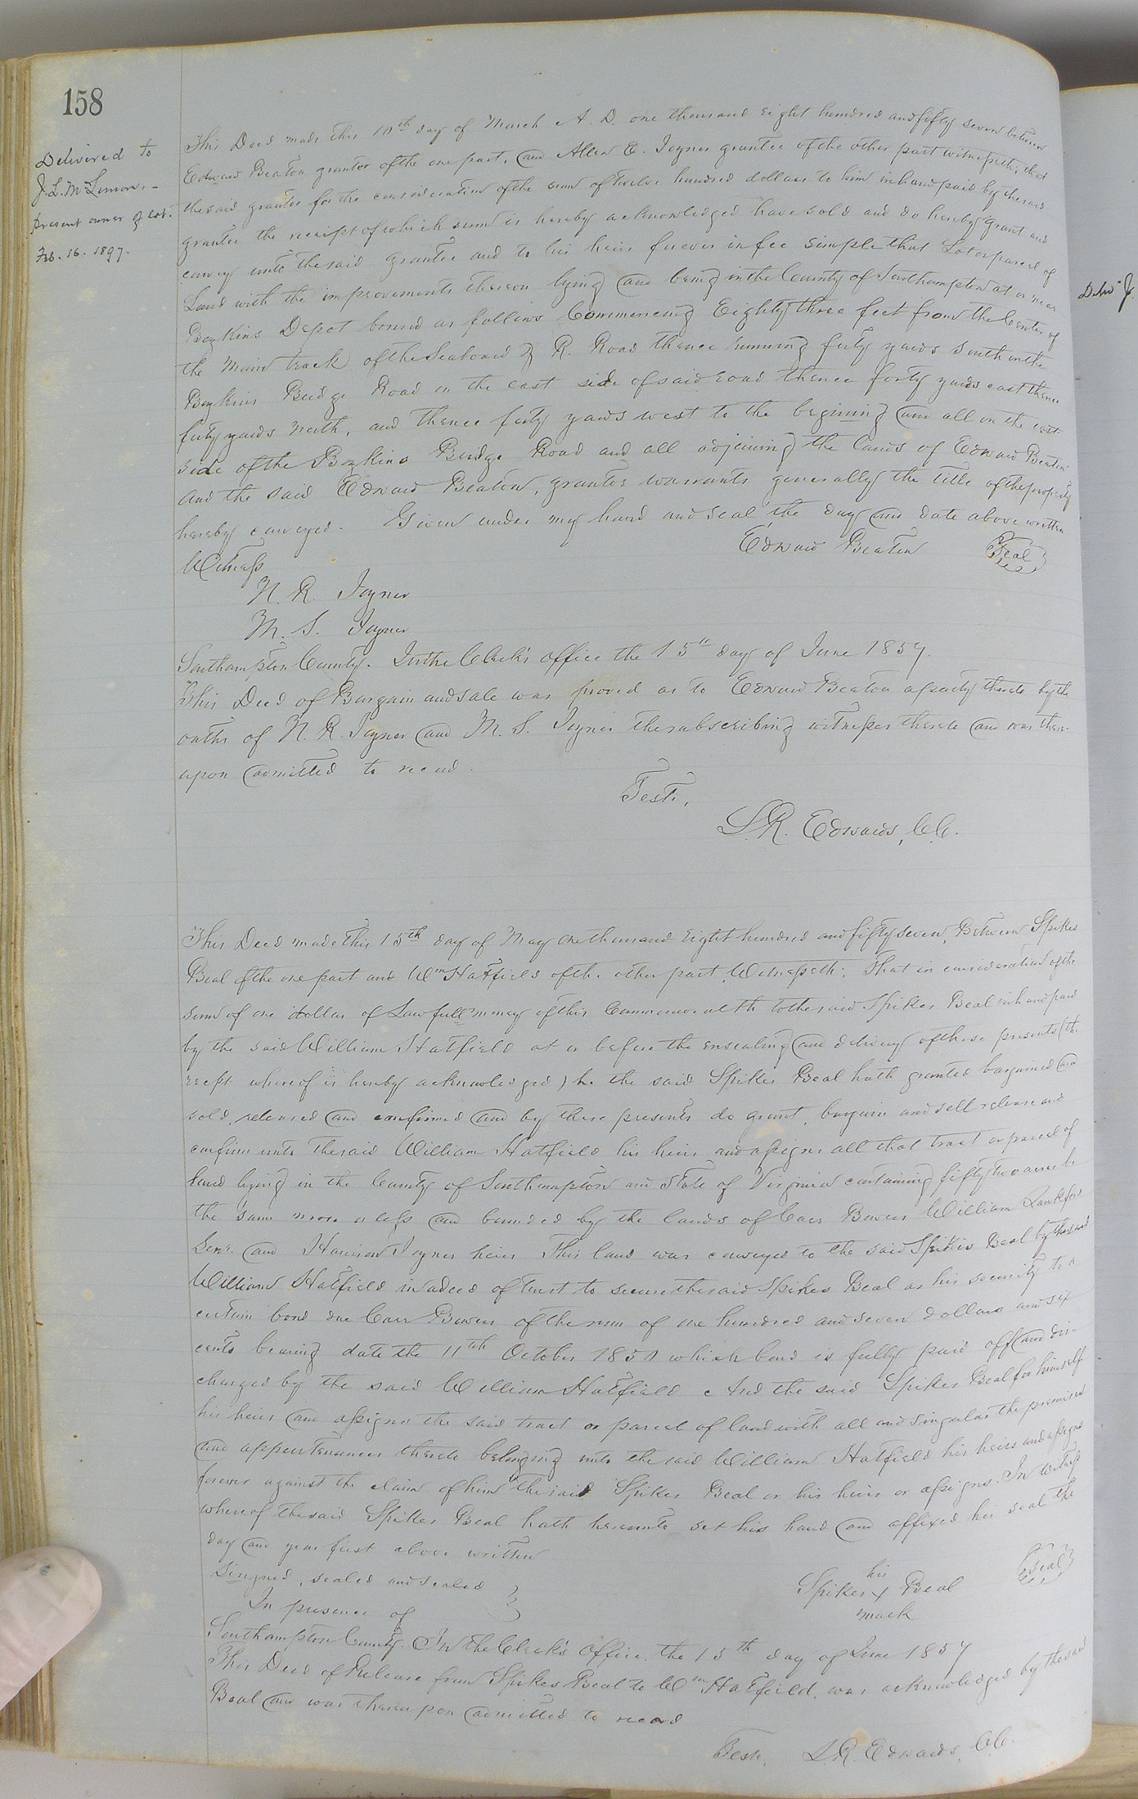 158
Delivered to
J. L. McLemore -
present owner of lot.
Feb. 16. 1897.
This Deed made this 10th day of March A. D. one thousand eight hundred and fifty seven between
Edward Beaton grantor of the one part, and Allen E. Joyner grantee of the other part witnesseth, that
the said grantor for the consideration of the sum of twelve hundred dollars to him in hand paid by the said
grantee the receipt of which sum is hereby acknowledged have sold and do hereby grant and
convey unto the said grantee and to his heirs forever in fee simple that Lot or parcel of
Land with the improvements thereon lying and being in the County of Southampton at or near
Boykins Depot bound as follows Commencing Eighty three feet from the Center of
the Main track of the Seaboard & R. Road thence running forty yards South on the
Boykins Bridge Road on the east side of said road thence forty yards east thence
forty yards North, and thence forty yards west to the begining and all on the east
side of the Boykins Bridge Road and all adjoining the lands of Edward Beaton
And the said Edward Beaton, grantor warrants generally the title of the property
hereby conveyed. Given under my hand and seal the day and date above written
Witness Edward Beaton Seal
N. R. Joyner
M. S. Joyner
Southampton County. In the Clerk's office the 15th day of June 1857.
This Deed of Bargain and sale was proved as to Edward Beaton a party thereto by the
oaths of N. R. Joyner and M. S. Joyner the subscribing witnesses thereto and was there-
upon admitted to record.
Teste,
L. R. Edwards, C.C.
This Deed made this 15th day of May one thousand Eight hundred and fifty seven, Between Spikes
Beal of the one part and Wm Hatfield of the other part, Witnesseth: That in consideration of the
sum of one dollar of Lawfull money of this Commonwealth to the said Spikes Beal in hand paid
by the said William Hatfield at or before the ensealing and delivery of these presents (the
recept whereof is hereby acknowledged) he the said Spikes Beal hath granted bargained and
sold, released and confirmed and by these presents do grant, bargain and sell release and
confirm unto the said William Hatfield his heirs and assigns all that tract or parcel of
land lying in the County of Southampton and State of Virginia containing fifty two acres be
the same more or less and bounded by the lands of Carr Bowers William Lankford
Senr. and Harrison Joyners heirs This land was conveyed to the said Spikes Beal by the said
William Hatfield in a deed of trust to secure the said Spikes Beal as his security to a
certain bond due Carr Bowers of the sum of one hundred and seven dollars and six
cents bearing date the 11th October 1850 which bond is fully paid off and dis-
charged by the said William Hatfield And the said Spikes Beal for himself
his heirs and assigns the said tract or parcel of land with all and singular the premises
and appurtenances thereto belonging unto the said William Hatfield his heirs and assigns
forever against the claim of him the said Spikes Beal or his heirs or assigns. In witness
whereof the said Spikes Beal hath hereunto set his hand and affixed his seal the
day and year first above written
Singned, sealed and sealed
In presence of
his
Spikes x Beal Seal
mark
Southampton County. In the Clerk's Office, the 15th day of June 1857
This Deed of Release from Spikes Beal to Wm Hatfield, was acknowledged by the said
Beal and was thereupon admitted to record
Teste, L. R. Edwards, C.C.
Delvd J